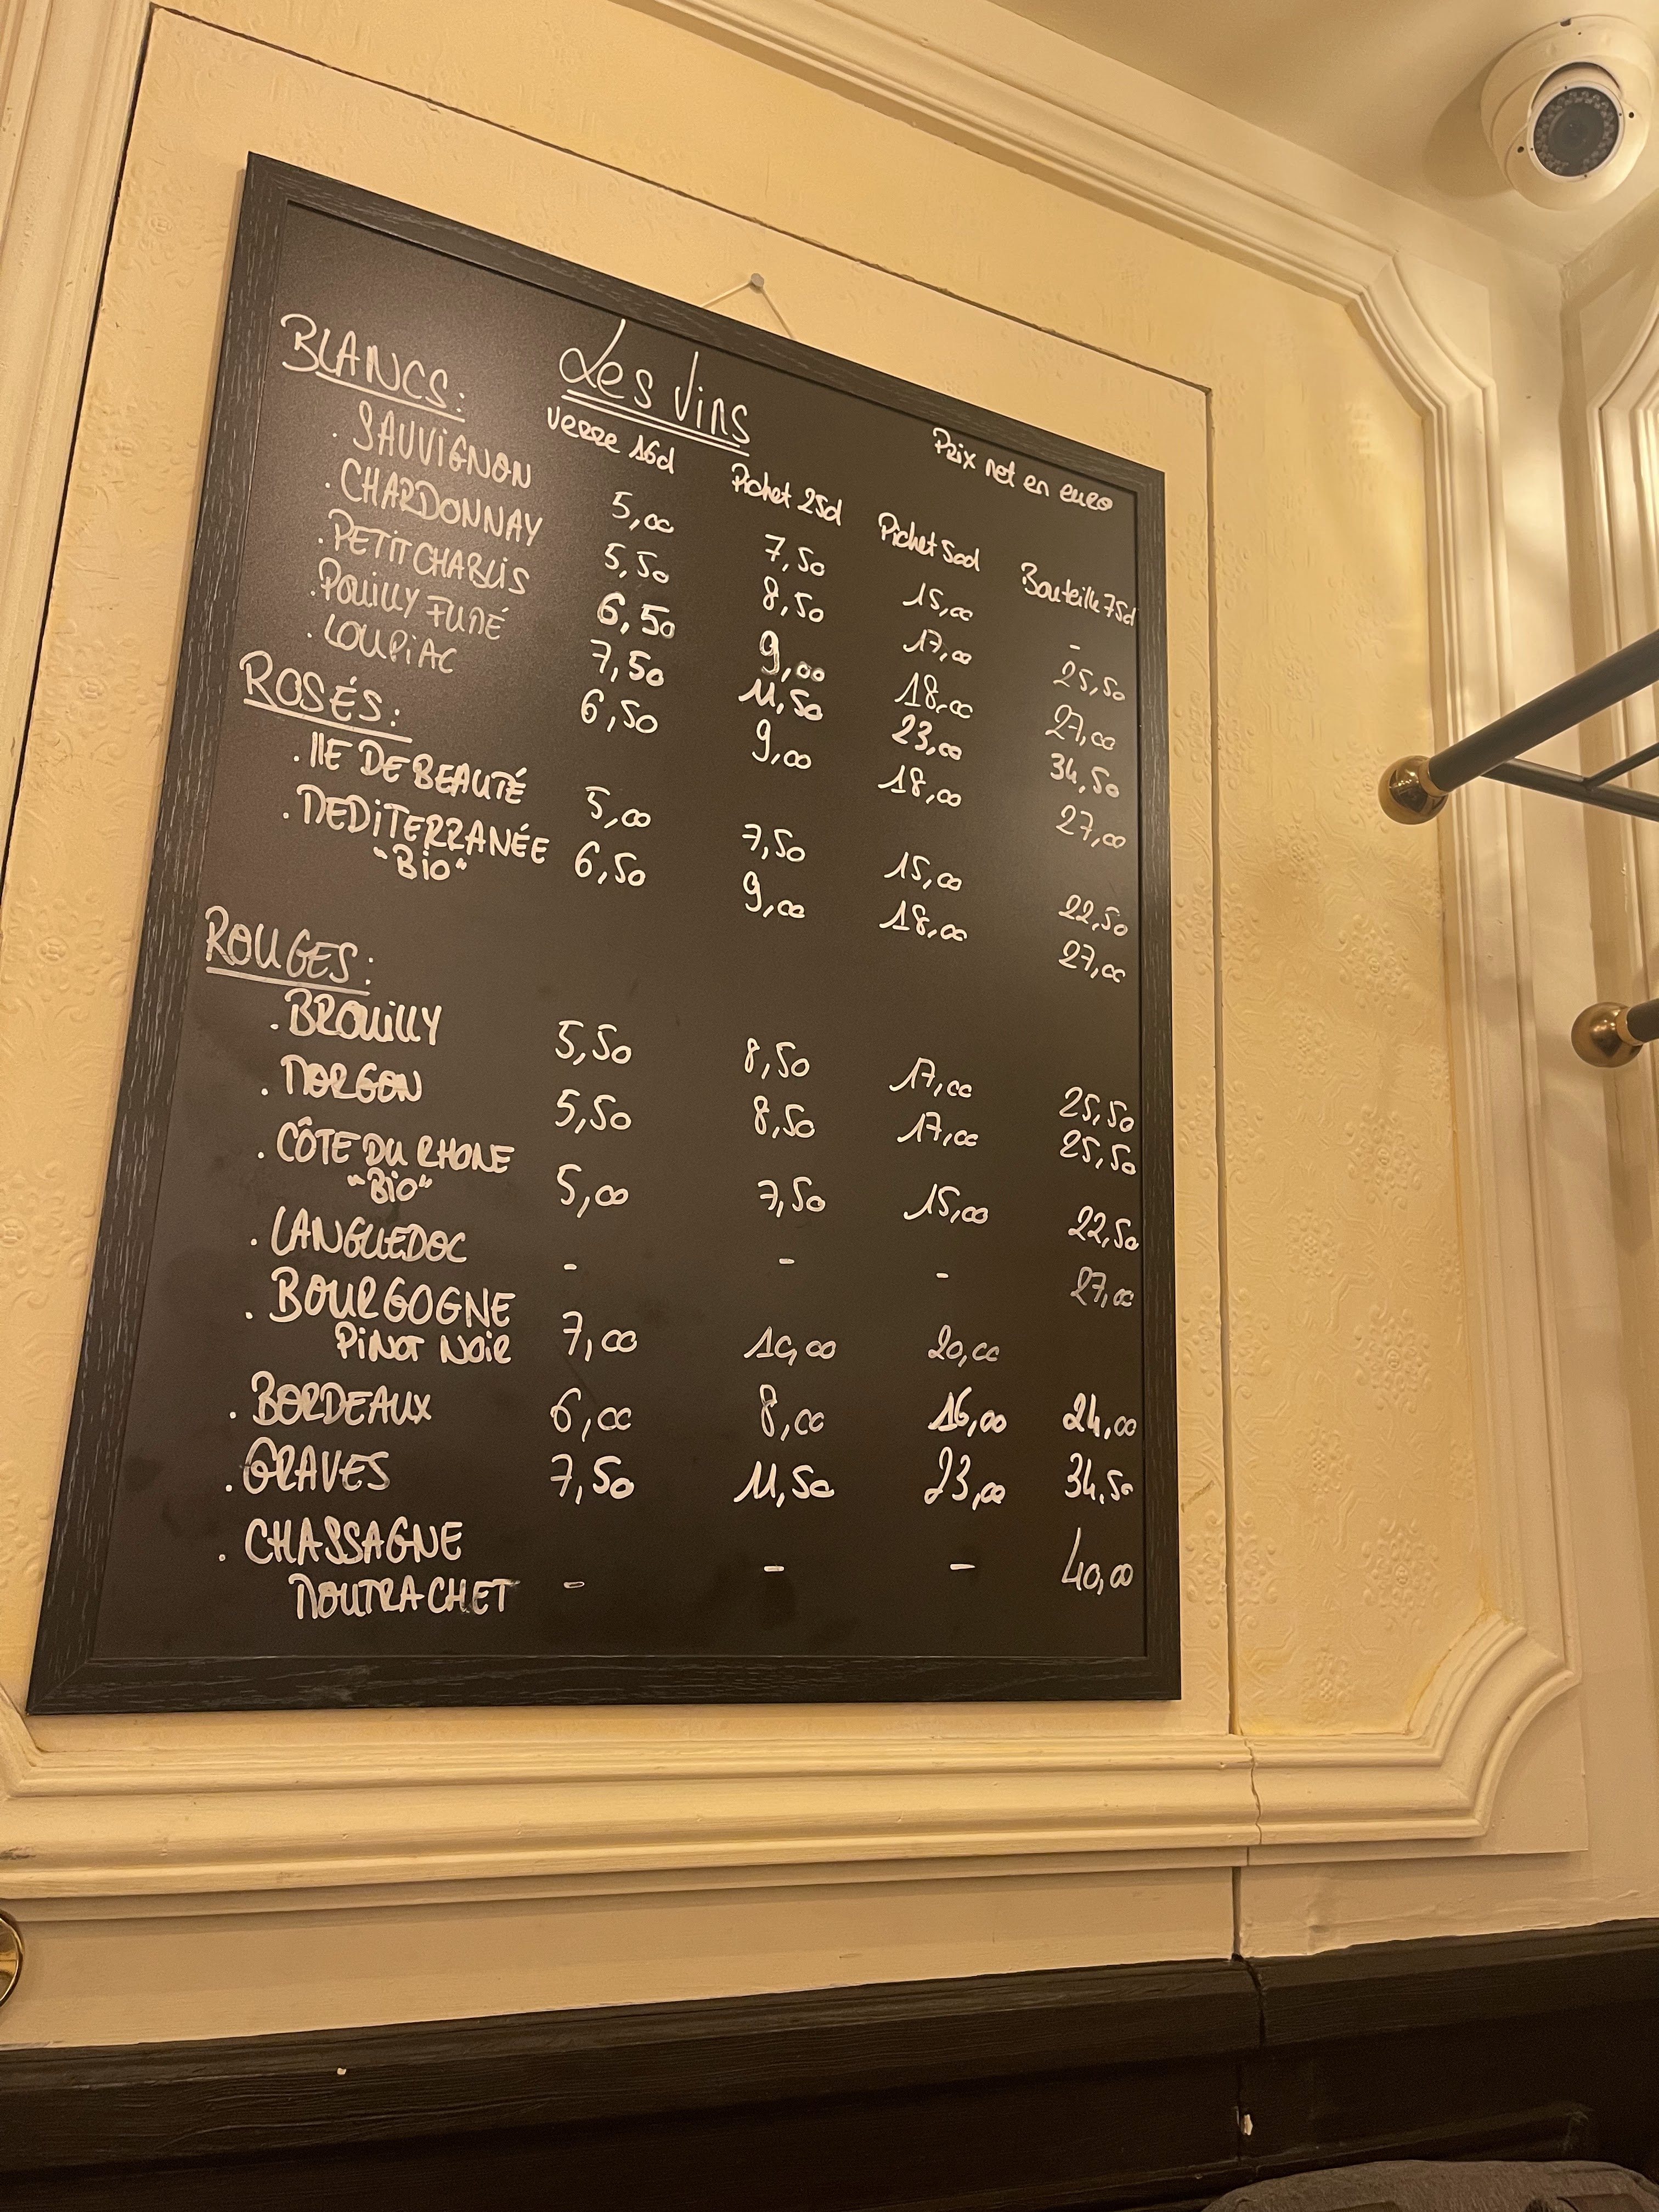 Les Vins
Prix net en euro
BLANCS: verre 16cl Pichet 25cl Pichet 50cl Bouteille 75cl
. SAUVIGNON 5,00 7,50 15,00 -
. CHARDONNAY 5,50 8,50 17,00 25,50
. PETIT CHABLIS 6,50 9,00 18,00 27,00
. POUILLY FUMÉ 7,50 11,50 23,00 34,50
. LOUPIAC 6,50 9,00 18,00 27,00
ROSÉS:
. ILE DE BEAUTÉ 5,00 7,50 15,00 22,50
. MEDITERRANÉE 6,50 9,00 18,00 27,00
"Bio"
ROUGES:
. BROUILLY 5,50 8,50 17,00 25,50
. MORGON 5,50 8,50 17,00 25,50
. CÔTE DU RHONE 5,00 7,50 15,00 22,50
"Bio"
. LANGUEDOC - - - 27,00
. BOURGOGNE
PINOT NOIR 7,00 10,00 20,00
. BORDEAUX 6,00 8,00 16,00 24,00
. GRAVES 7,50 11,50 23,00 34,50
. CHASSAGNE
MOUTRACHET - - - 40,00